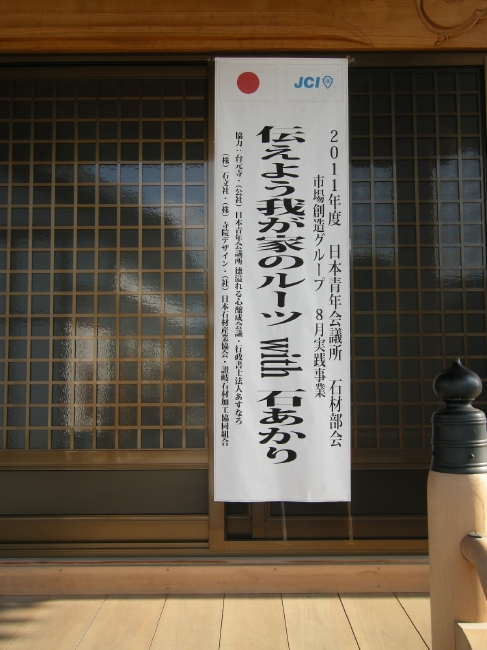 JCI
2011年度 日本青年会議所 石材部会
市場創造グループ 8月実践事業
伝えよう我が家のルーツ with 石あかり
協力:台元寺・(公社)日本青年会議所 徳溢れる心醸成会議・行政書士法人あすなろ
(株)石文社・(株)寺院デザイン・(社)日本石材産業協会・讃岐石材加工協同組合